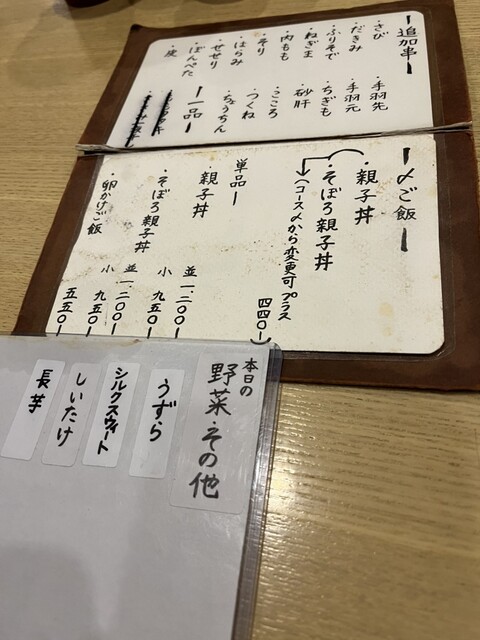 ー追加串ー
・さび
・だきみ
・ふりそで
・ねぎま
・肉もも
・そり
・はらみ
・せせり
・ぼんぺた
・皮
・手羽先
・手羽元
・ちぎも
・砂肝
・こころ
・つくね
・ちょうちん
ー一品ー
ー〆ご飯ー
・親子丼
・そぼろ親子丼
(コース〆から変更可プラス四四〇ー)
単品ー
・親子丼 並 一.二〇〇ー
小 九五〇ー
・そぼろ親子丼 並 一.二〇〇ー
小 九五〇ー
・卵かけご飯 五五〇ー
本日の
野菜・その他
うずら
シルクスウィート
しいたけ
長芋